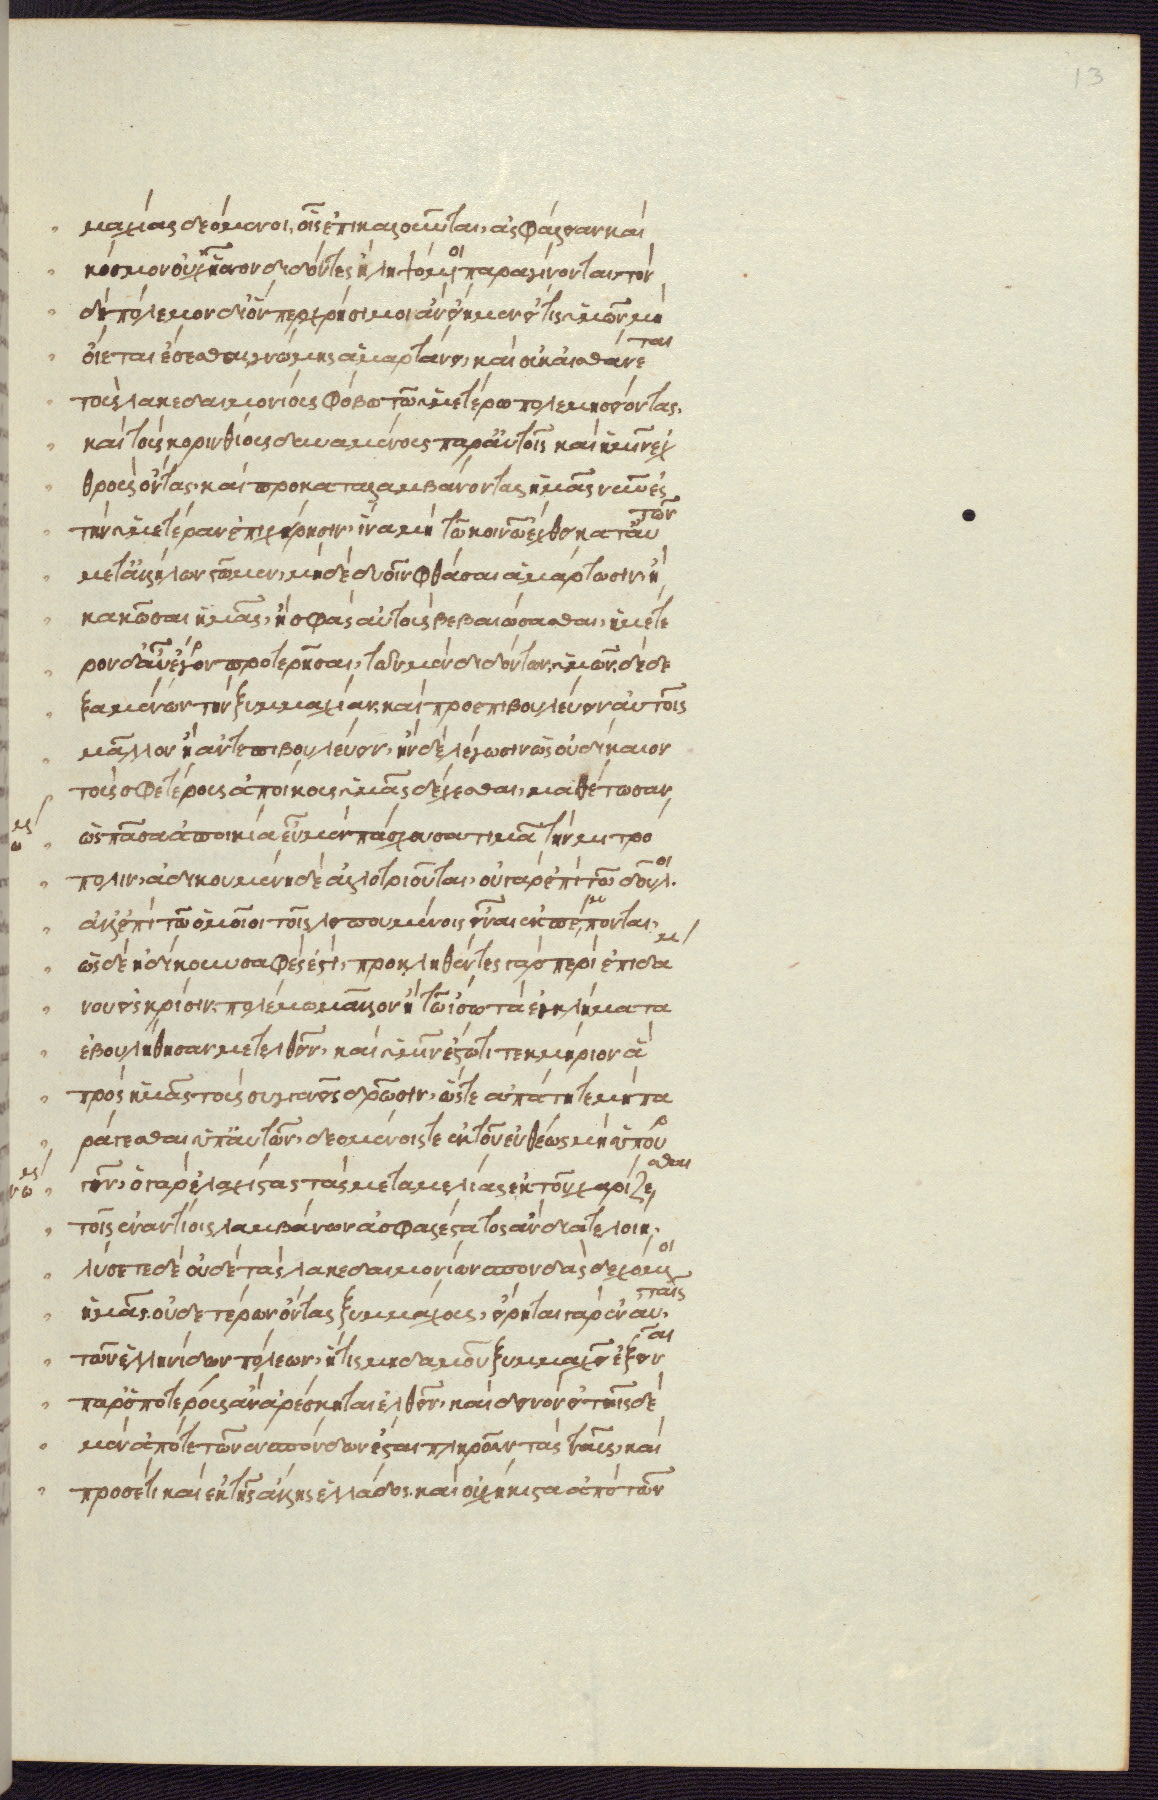 μαχίας δεόμενοι, οἷς ἐπικαλοῦνται, ἀσφάλειαν καὶ
κόσμον οὐχ ἧσσον διδόντες ἢ ληψόμενοι παραγίνονται· τὸν
δὲ πόλεμον δι' ὅνπερ χρήσιμοι ἂν εἶμεν εἴ τις ὑμῶν μὴ
οἴεται ἔσεσθαι, γνώμης ἁμαρτάνει, καὶ οὐκ αἰσθάνεται
τοὺς λακεδαιμονίους φόβω τῶ ὑμετέρω πολεμησείοντας,
καὶ τοὺς κορινθίους δυναμένους παρ' αὐτοῖς καὶ ἡμῖν ἐχ
θροὺς ὄντας, καὶ προκαταλαμβάνοντας ἡμᾶς νῦν ἐς
τὴν ὑμετέραν ἐπιχείρησιν, ἵνα μὴ τῶ κοινῶ ἔχθει κατ' αὐτῶν
μετ' ἀλλήλων στῶμεν, μηδὲ δυοῖν φθάσαι ἁμάρτωσιν, ἢ
κακῶσαι ἡμᾶς, ἢ σφᾶς αὐτοὺς βεβαιώσασθαι, ἡμέτε
ρον δ' αὖ ἔργον προτερῆσαι, τῶν μὲν διδόντων, ὑμῶν δὲ δε
ξαμένων τὴν ξυμμαχίαν, καὶ προεπιβουλεύειν αὐτοῖς
μᾶλλον ἢ ἀντεπιβουλεύειν, ἢν δὲ λέγωσιν ὡς οὐ δίκαιον
τοὺς σφετέρους ἀποίκους ὑμᾶς δέχεσθαι, μαθέτωσαν
ὡς πᾶσα ἀποικία εὖ μὲν πάσχουσα τιμᾶ τὴν μητρό
πολιν, ἀδικουμένη δὲ ἀλλοτριοῦται, οὐ γὰρ ἐπὶ τῶ δοῦλοι.
ἀλλ' ἐπὶ τῶ ὁμοῖοι τοῖς λειπομένοις εἶναι ἐκπέμπονται,
ὡς δὲ ἠδίκουν σαφές ἐστι, προκληθέντες γὰρ περὶ ἐπιδάμ
νου εἰς κρίσιν, πολέμω μᾶλλον ἢ τῶ ἴσω τὰ ἐγκλήματα
ἐβουλήθησαν μετελθεῖν, καὶ ὑμῖν ἔστω τι τεκμήριον ἃ
πρὸς ἡμᾶς τοὺς συγγενεῖς δρῶσιν, ὥστε ἀπάτη τε μὴ πα
ράγεσθαι ὑπ' αὐτῶν, δεομένοις τε ἐκ τοῦ εὐθέως μὴ ὑπουρ
γεῖν, ὁ γὰρ ἐλαχίστας τὰς μεταμελείας ἐκ τοῦ χαρίζεσθαι
τοῖς ἐναντίοις λαμβάνων ἀσφαλέστατος ἂν διατελοίη,
λύσετε δὲ οὐδὲ τὰς λακεδαιμονίων σπονδὰς δεχόμενοι
ἡμᾶς οὐδετέρων ὄντας ξυμμάχους, εἴρηται γὰρ ἐν αὐταῖς,
τῶν ἑλληνίδων πόλεων, ἥτις μηδαμοῦ ξυμμαχεῖ ἐξεῖναι
παρ' ὁποτέρους ἂν ἀρέσκηται ἐλθεῖν, καὶ δεινὸν εἰ τοῖσδε
μὲν ἀπό τε τῶν ἐνσπόνδων ἔσται πληροῦν τὰς ναῦς, καὶ
προσέτι καὶ ἐκ τῆς ἄλλης ἑλλάδος, καὶ οὐχ ἥκιστα ἀπὸ τῶν
13